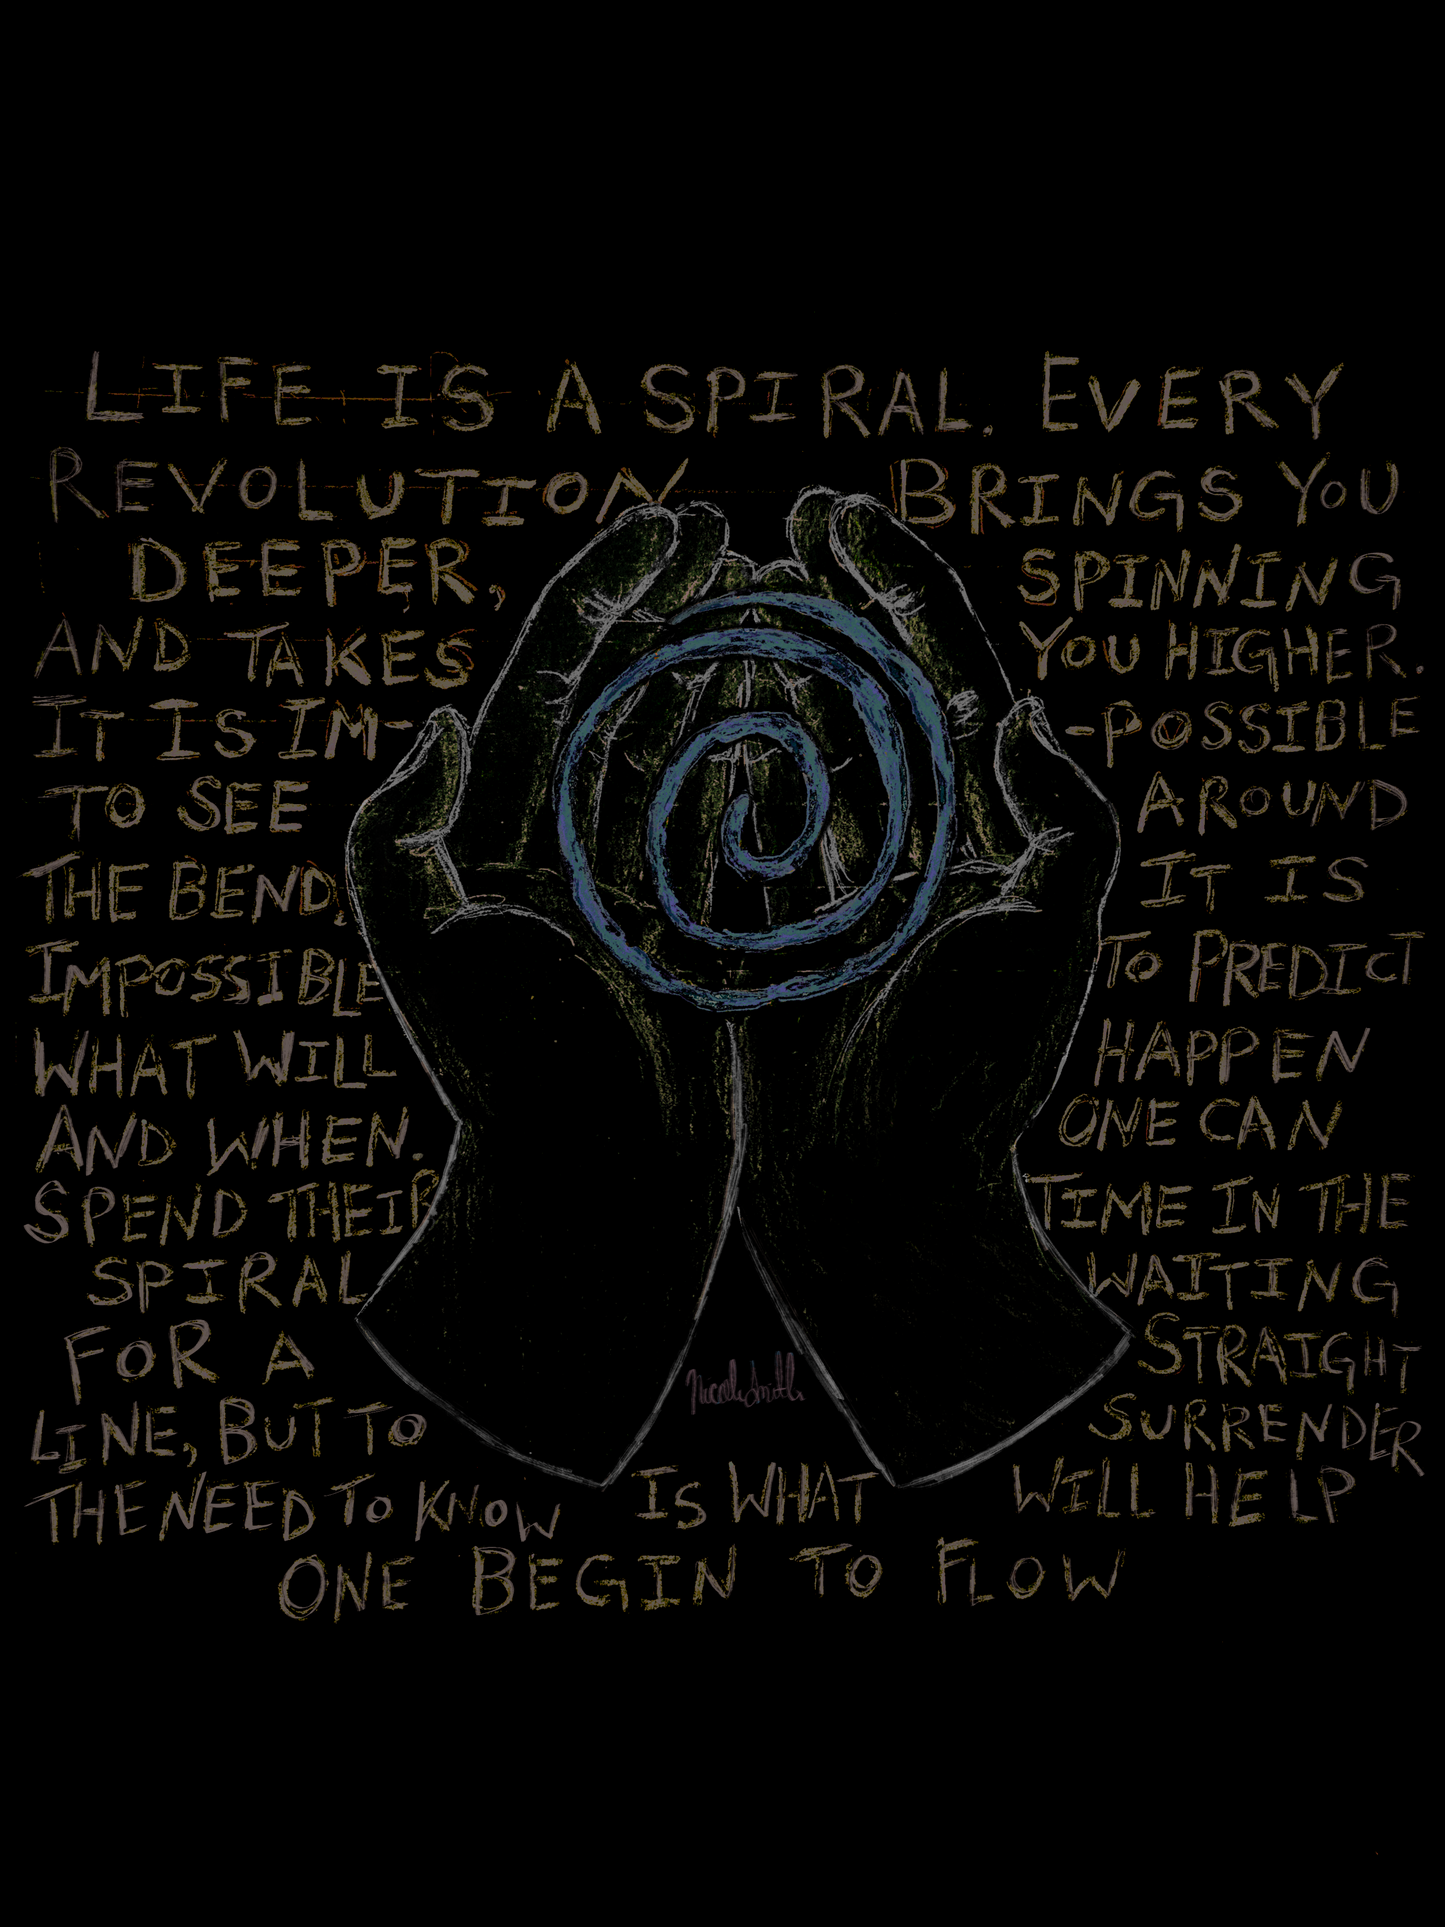 LIFE IS A SPIRAL. EVERY
REVOLUTION BRINGS YOU
DEEPER, SPINNING
AND TAKES YOU HIGHER.
IT IS IM- -POSSIBLE
TO SEE AROUND
THE BEND. IT IS
IMPOSSIBLE TO PREDICT
WHAT WILL HAPPEN
AND WHEN. ONE CAN
SPEND THEIR TIME IN THE
SPIRAL WAITING
FOR A STRAIGHT
LINE, BUT TO SURRENDER
THE NEED TO KNOW IS WHAT WILL HELP
ONE BEGIN TO FLOW
Nicole Smith